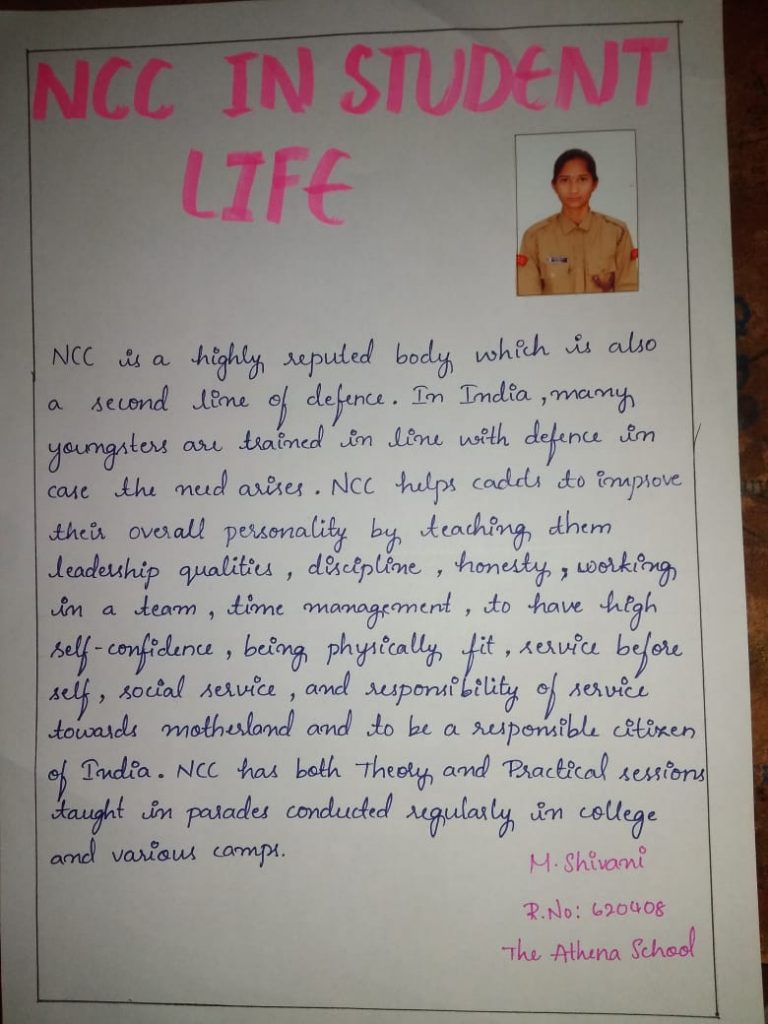 NCC IN STUDENT
LIFE
NCC is a highly reputed body which is also
a second line of defence. In India, many
youngsters are trained in line with defence in
case the need arises. NCC helps cadets to improve
their overall personality by teaching them
leadership qualities, discipline, honesty, working
in a team, time management, to have high
self-confidence, being physically fit, service before
self, social service, and responsibility of service
towards motherland and to be a responsible citizen
of India. NCC has both Theory and Practical sessions
taught in parades conducted regularly in college
and various camps.
M. Shivani
R.No: 620408
The Athena School